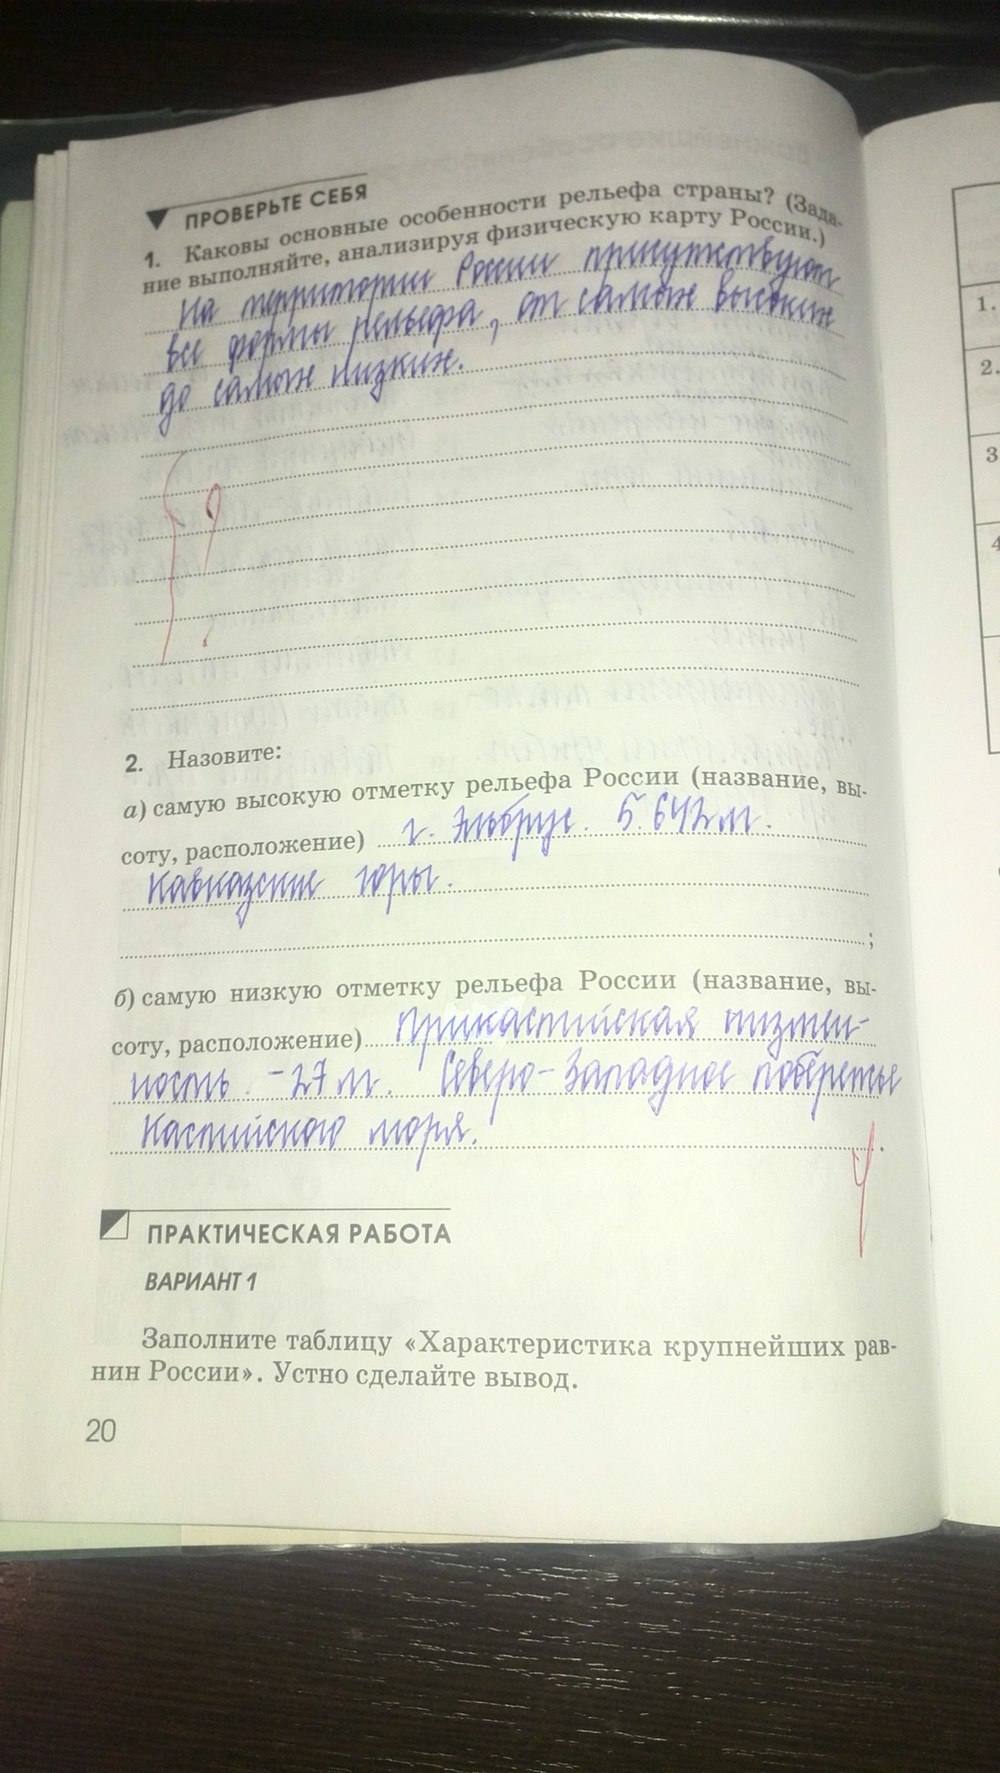 ПРОВЕРЬТЕ СЕБЯ
1. Каковы основные особенности рельефа страны? (Зада-
ние выполняйте, анализируя физическую карту России.)
На территории России присутствуют
все формы рельефа, от самых высоких
до самых низких.
?
2. Назовите:
а) самую высокую отметку рельефа России (название, вы-
соту, расположение) г. Эльбрус. 5.642м.
Кавказские горы.
;
б) самую низкую отметку рельефа России (название, вы-
соту, расположение) Прикаспийская низмен-
ность. -27 м. Северо-Западное побережье
Каспийского моря.
.
4
ПРАКТИЧЕСКАЯ РАБОТА
ВАРИАНТ 1
Заполните таблицу «Характеристика крупнейших рав-
нин России». Устно сделайте вывод.
20
1.
2.
3
4